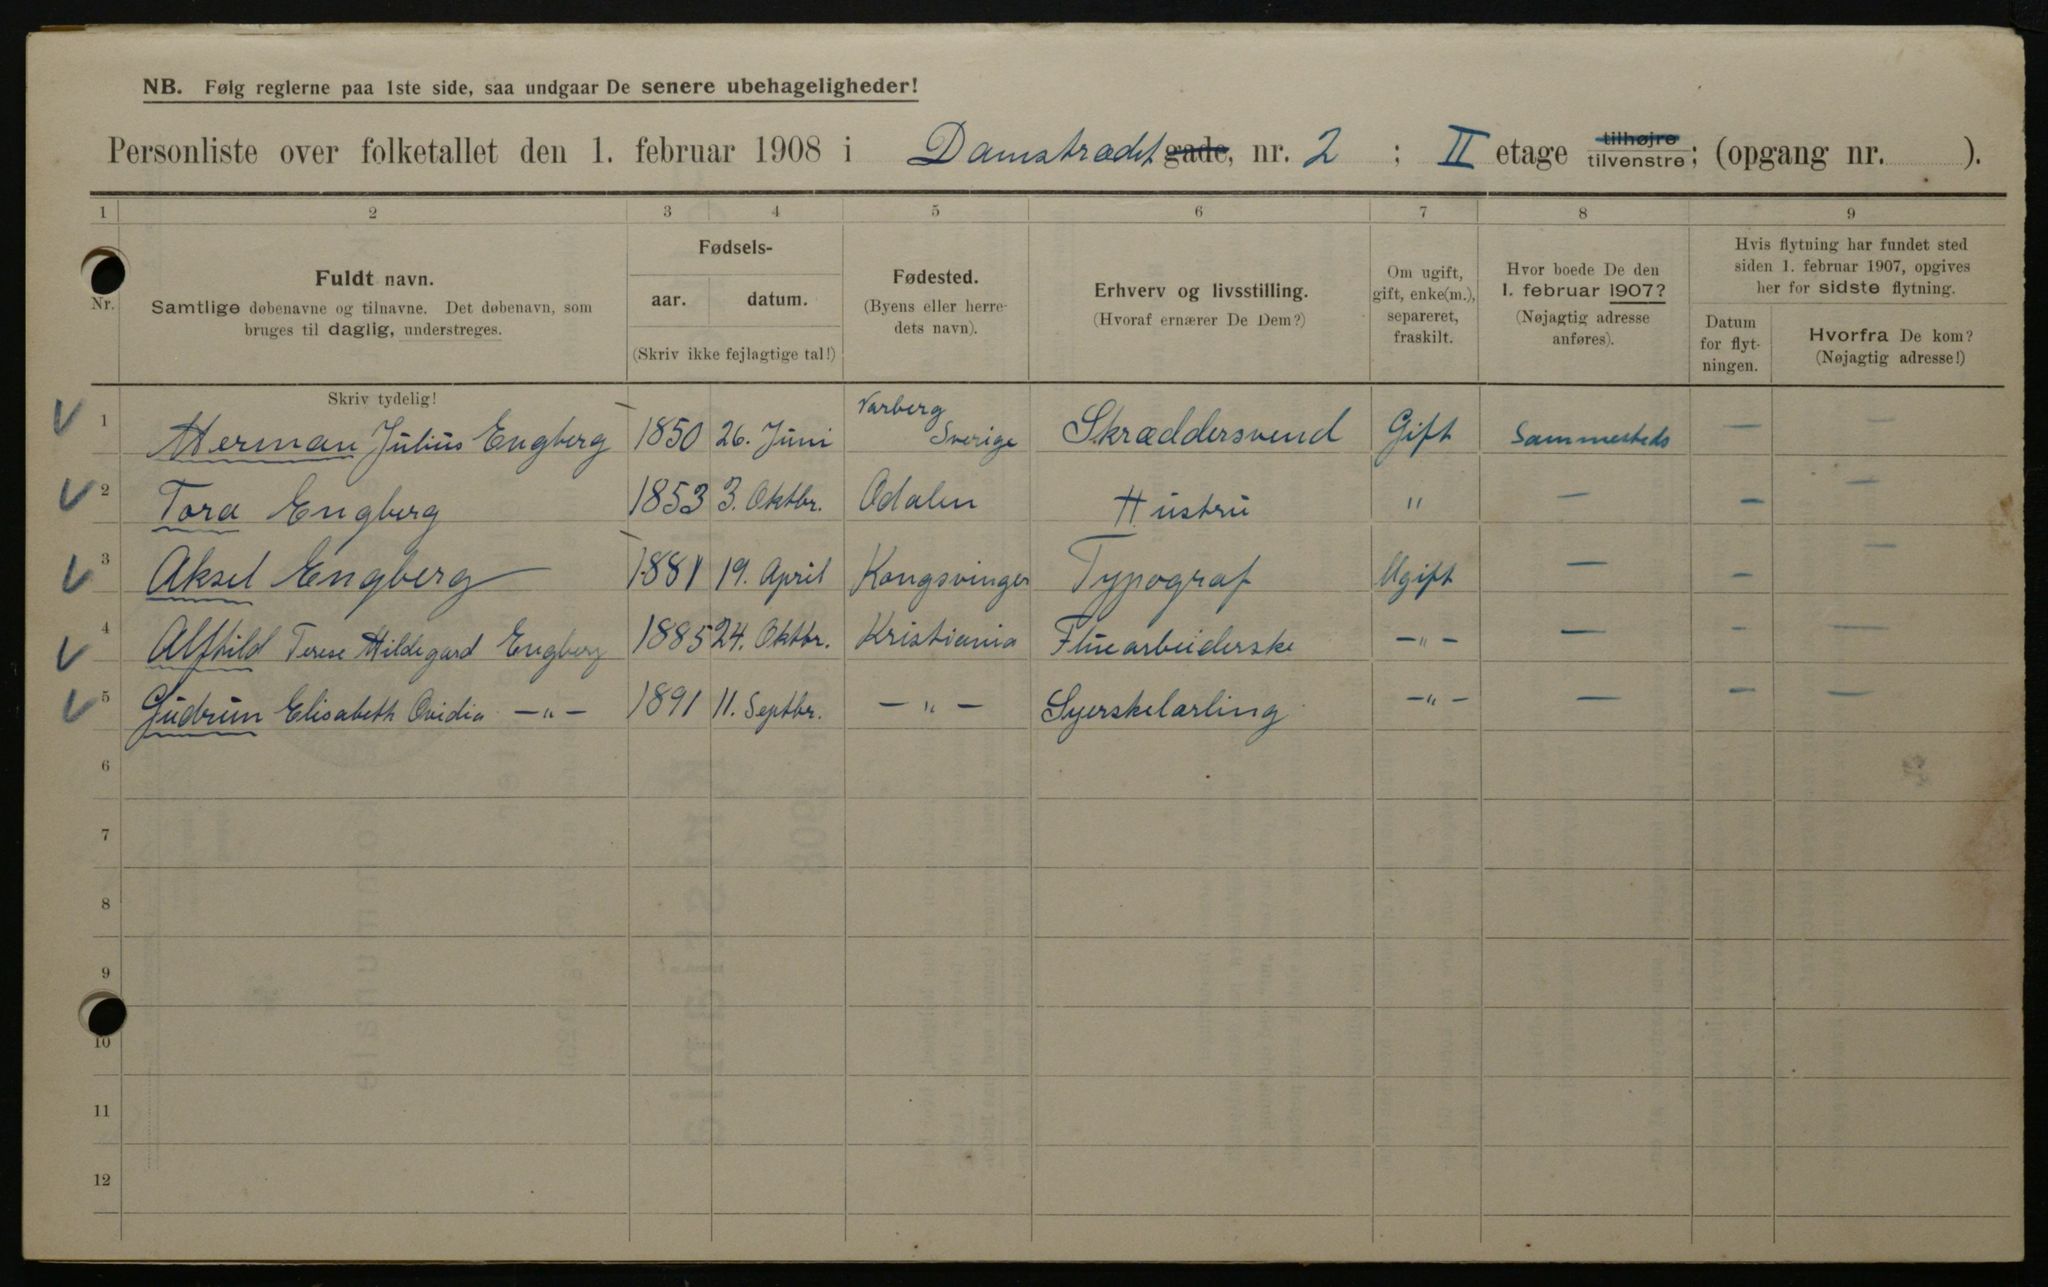 NB. Følg reglerne paa 1ste side, saa undgaar De senere ubehageligheder!
Personliste over folketallet den 1. februar 1908 i Damstrædet gade, nr. 2 ; II etage tilhøjre tilvenstre; (opgang nr. ).
1 2 3 4 5 6 7 8 9
Nr.
Fuldt navn.
Samtlige døbenavne og tilnavne. Det døbenavn, som
bruges til daglig, understreges.
Fødsels-
aar. datum.
(Skriv ikke fejlagtige tal!)
Fødested.
(Byens eller herre-
dets navn).
Erhverv og livsstilling.
(Hvoraf ernærer De Dem?)
Om ugift,
gift, enke(m.),
separeret,
fraskilt.
Hvor boede De den
1. februar 1907?
(Nøjagtig adresse
anføres).
Hvis flytning har fundet sted
siden 1. februar 1907, opgives
her for sidste flytning.
Datum
for flyt-
ningen.
Hvorfra De kom?
(Nøjagtig adresse!)
Skriv tydelig!
1 Herman Julius Engberg 1850 26. Juni Varberg Sverige Skræddersvend Gift Sammesteds — —
2 Tora Engberg 1853 3. Oktbr. Odalen Hustru " — — —
3 Aksel Engberg 1881 19. April Kongsvinger Typograf Ugift — — —
4 Alfhild Terese Hildegard Engberg 1885 24. Oktbr. Kristiania —"— — — —
5 Gudrun Elisabeth Ovidia —"— 1891 11. Septbr. —"— Syerskelærling —"— — — —
6
7
8
9
10
11
12